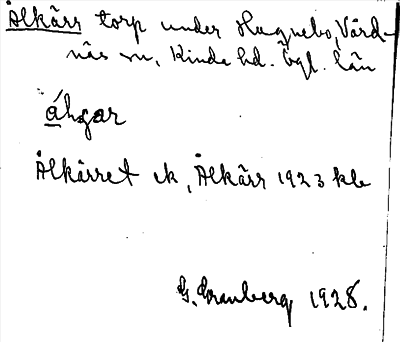 Ålkärr torp under Hagnebo, Vård-
näs sn, Kinda hd. Ögl. län
Ålkärret ek, Ålkärr 1923 kb
G. Granberg 1928.